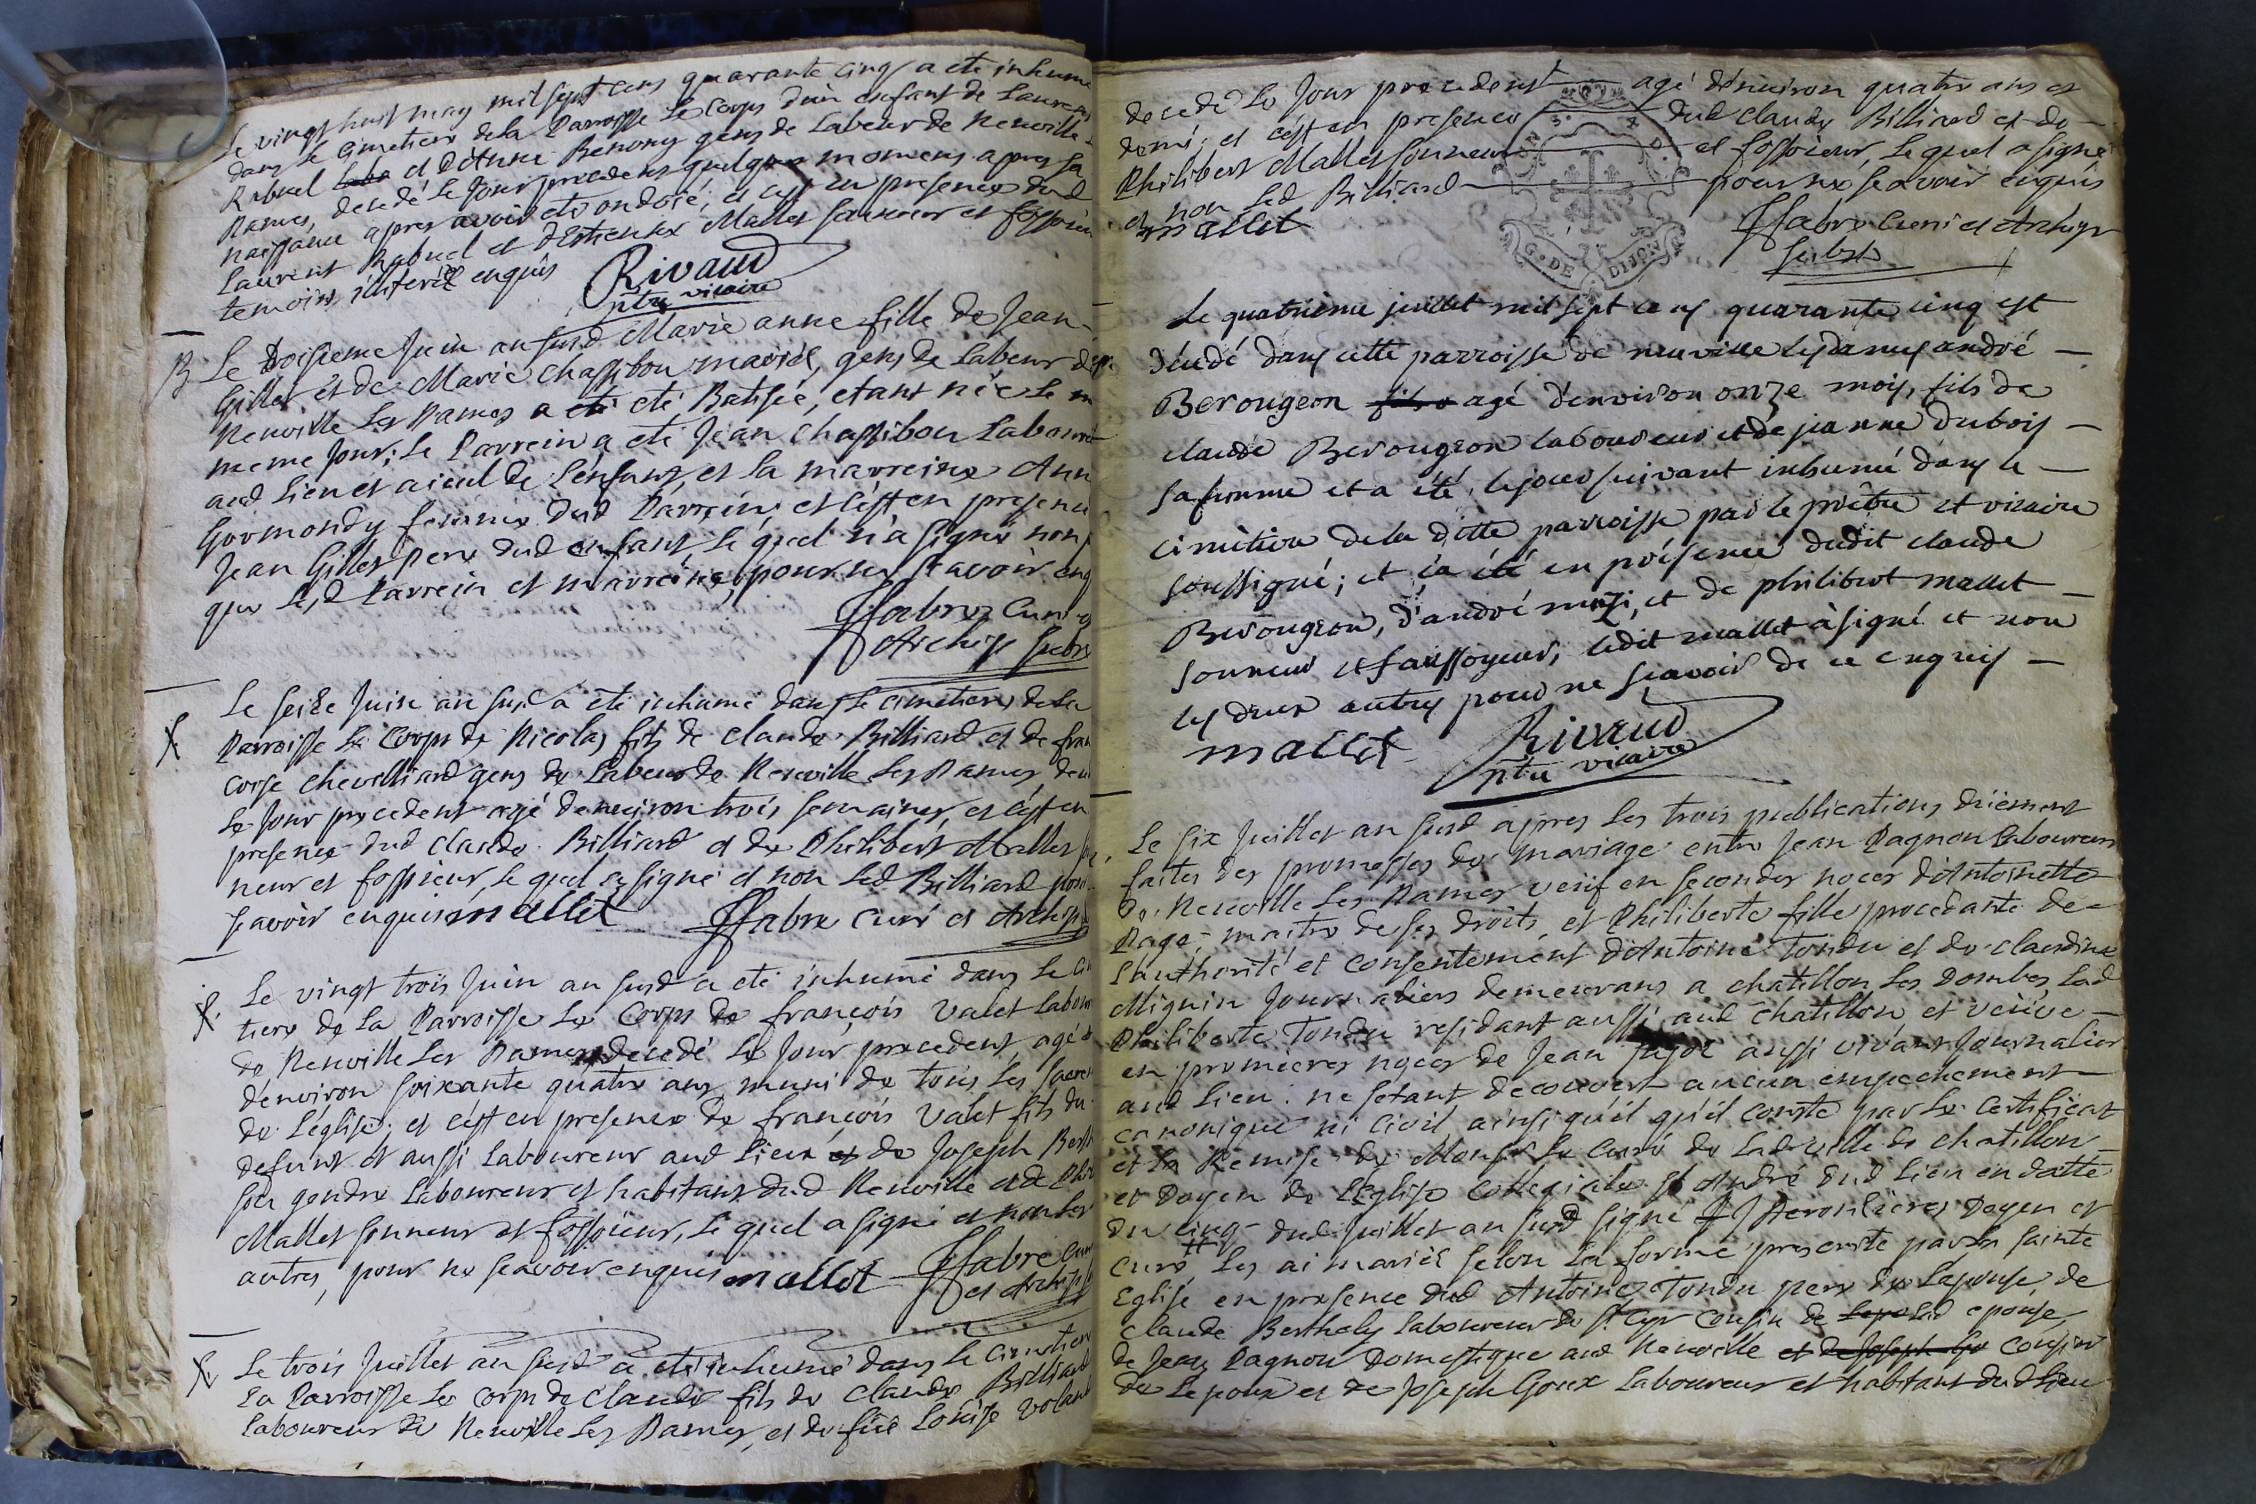 Le vingt huit may mil sept cens quarante cinq a eté inhumé
dans le cimetiere de la Parroisse le corps d'un enfant de Laurens
Rabuel et d'Etienne Benony gens de labeur de Neuville
Dames, decedé le jour precedent quelques momens apres sa
naissance apres avoir eté ondoié; et c'est en presence dud
Laurent Rabuel et d'Etienne Mallet sonneur et fossoieur
temoins enquis
Rivaud
ptre vicaire
B. Le troisieme Juin an susd Marie anne fille de Jean
Gillet et de Marie Chassibou mariés, gens de labeur de
Neuville les Dames a eté eté Batisée, etant née le m
meme jour; le Parrein a eté Jean Chassibou laboure
aud lieu et aieul de l'enfant, et la marreine Ann
Gormondy femme dud Parrein; et c'est en presence
Jean Gillet pere dud enfant, le quel n'a signé non
que lesd Parrein et marreine, pour ne scavoir enq
ffabre Curé
Archip subs
Le seize Juin an susd a eté inhumé dans le cimetiere de la
Parroisse le corps de Nicolas fils de claude Billiard et de fran
coise chevelliard gens de labeur de Neuville les Dames, dece
le jour precedent agé denviron trois semaines, et c'est en
presence dud claude Billiard et de Philibert Mallet so
neur et fossoieur, le quel a signé et non led Billiard pour
scavoir enquis mallet ffabre curé et Archip
Le vingt trois Juin an susd a eté inhumé dans le cim
tiere de la Parroisse le corps de françois Valet labour
de Neuville les Dames decedé le jour precedent, agé
d'environ soixante quatre ans muni de tous les sacrem
de l'église; et c'est en presence de françois Valet fils du
defunt et aussi laboureur aud lieu et de Joseph Berth
son gendre laboureur et habitant dud Neuville et de Phi
Mallet sonneur et fossoieur, le quel a signé et non les
autres, pour ne scavoir enquis mallet ffabre Cur
et Archip
Le trois Juillet an susd a eté inhumé dans le cimetiere
la Parroisse le corps de claude fils de claude Billiard
laboureur de Neuville les Dames, et de füe Loüise volan
decedé le jour precedent agé denviron quatre ans et
demi, et c'est en presence dud claude Billiard et de
Philibert Mallet sonneur et fossoieur, le quel a signé
et non led Billiard pour ne scavoir enquis
mallet ffabre curé et Archipr
subst
G. DE DIJON
Le quatrieme juillet mil sept cens quarante cinq est
décédé dans cette parroisse de neuville les dames andré
Berougeon fils agé d'environ onze mois, fils de
claude Berougeon laboureur et de jeanne Dubois
sa femme et a été le jour suivant inhumé dans le
cimètiere de la ditte parroisse par le prêtre et vicaire
soussigné; et ç'a été en présence dudit claude
Berougeon, d'andré et de philibert mallet
sonneur et faussoyeur, ledit mallet à signé et non
les deux autres pour ne scavoir de ce enquis
mallet Rivaud
ptre vicaire
Le six Juillet an susd apres les trois publications düement
faites des promesses de mariage entre Jean Pagnon laboureur
de Neuville les Dames veüf en secondes noces d'Antoinette
Page, maitre de ses droits, et Philiberte fille procedante de
l'authorité et consentement d'Antoine Tondu et de claudine
Mignin Journaliers demeurans a chatillon les Dombes, lad
Philiberte Tondu residant aussi aud chatillon et veüve
en premieres noces de Jean aussi vivant Journalier
aud lieu. ne s'etant decouvert aucun empechement
canonique ni civil ainsi qu'il qu'il conste par le certificat
et la Remise de Monsr le Curé de lad ville de Chatillon
et Doyen de l'Eglise Collegiale St André dud lieu en datte
du cinq dud Juillet an susd signé Doyen et
curé, les ai mariés selon la forme prescrite par la sainte
Eglise en presence dud Antoine Tondu pere de l'epouse, de
claude Berthely laboureur de St Cyr cousin de lad epouse,
de Jean Pagnon Domestique aud Neuville et de Joseph Go cousin
de l'epoux et de Joseph Goux laboureur et habitant dud lieu